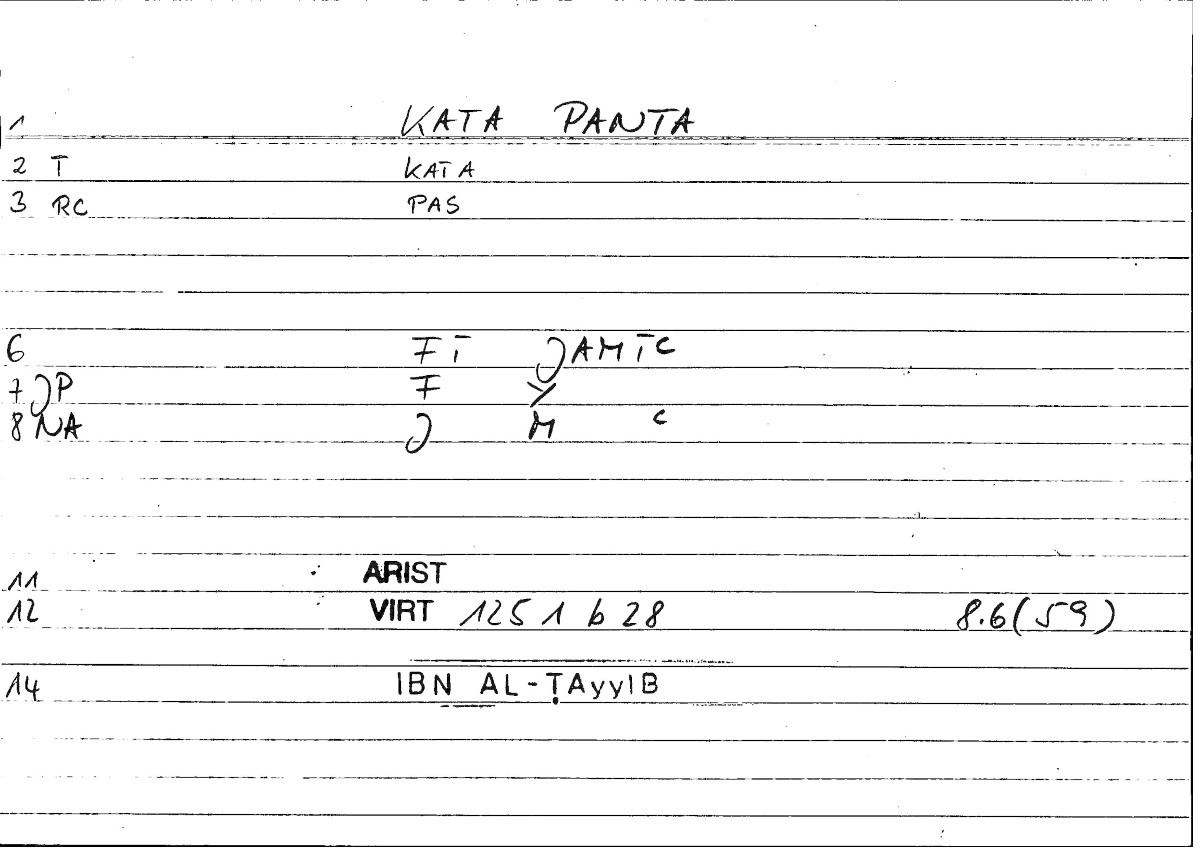 1 KATA PANTA
2 T KATA
3 RC PAS
6 FI JAMIC
7 JP F Y
8 NA J M C
11 ARIST
12 VIRT 1251 b 28 8.6(59)
14 IBN AL-ṬAyyIB